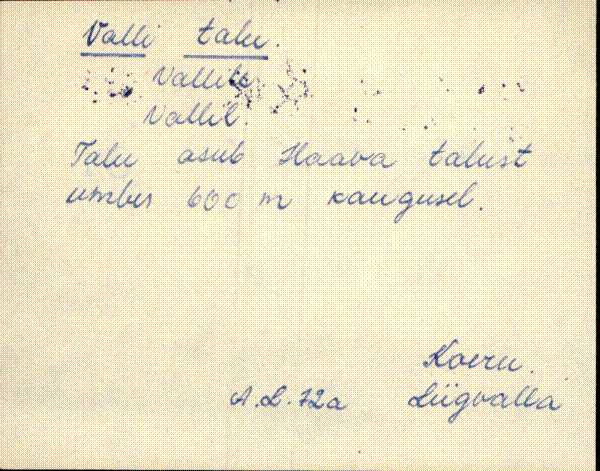 Valli talu.
Vallile
Vallil.
Talu asub Haava talust
umbes 600 m kaugusel.
Koeru.
A.L. 72a Liigvalla